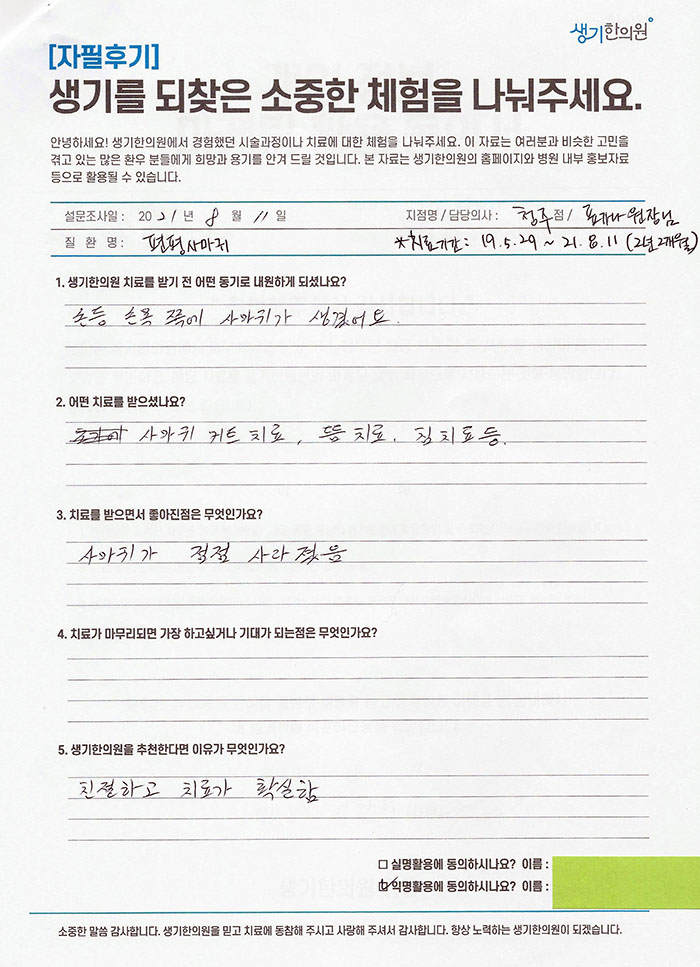 생기한의원
[자필후기]
생기를 되찾은 소중한 체험을 나눠주세요.
안녕하세요! 생기한의원에서 경험했던 시술과정이나 치료에 대한 체험을 나눠주세요. 이 자료는 여러분과 비슷한 고민을
겪고 있는 많은 환우 분들에게 희망과 용기를 안겨 드릴 것입니다. 본 자료는 생기한의원의 홈페이지와 병원 내부 홍보자료
등으로 활용될 수 있습니다.
설문조사일 : 2021년 8월 11일 지점명 / 담당의사 : 청주점 / 표가나 원장님
질 환 명 : 편평사마귀 *치료기간 : 19.5.29 ~ 21.8.11 (2년 2개월)
1. 생기한의원 치료를 받기 전 어떤 동기로 내원하게 되셨나요?
손등 손목 쪽에 사마귀가 생겼어요.
2. 어떤 치료를 받으셨나요?
사마귀 커트 치료, 뜸 치료. 침 치료 등.
3. 치료를 받으면서 좋아진점은 무엇인가요?
사마귀가 점점 사라졌음
4. 치료가 마무리되면 가장 하고싶거나 기대가 되는점은 무엇인가요?
5. 생기한의원을 추천한다면 이유가 무엇인가요?
친절하고 치료가 확실함
□ 실명활용에 동의하시나요? 이름 :
☑ 익명활용에 동의하시나요? 이름 :
소중한 말씀 감사합니다. 생기한의원을 믿고 치료에 동참해 주시고 사랑해 주셔서 감사합니다. 항상 노력하는 생기한의원이 되겠습니다.